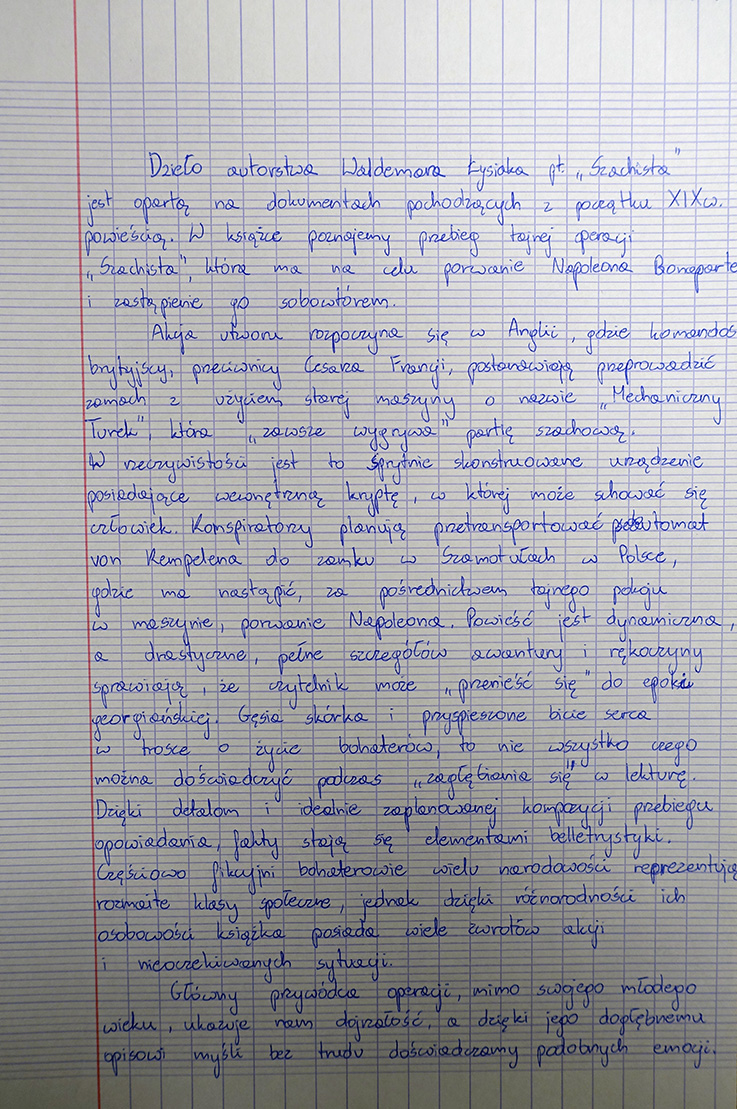 Dzieło autorstwa Waldemara Łysiaka pt. „Szachista"
jest opartą na dokumentach pochodzących z początku XIXw.
powieścią. W książce poznajemy przebieg tajnej operacji
„Szachista", która ma na celu porwanie Napoleona Bonaparte
i zastąpienie go sobowtórem.
Akcja utworu rozpoczyna się w Anglii, gdzie komandos
brytyjscy, przeciwnicy Cesarza Francji, postanawiają przeprowadzić
zamach z użyciem starej maszyny o nazwie „Mechaniczny
Turek", która „zawsze wygrywa" partię szachową.
W rzeczywistości jest to sprytnie skonstruowane urządzenie
posiadające wewnętrzną kryptę, w której może schować się
człowiek. Konspiratorzy planują przetransportować automat
von Kempelena do zamku w Szamotułach w Polsce,
gdzie ma nastąpić, za pośrednictwem tajnego pokoju
w maszynie, porwanie Napoleona. Powieść jest dynamiczna,
a drastyczne, pełne szczegółów awantury i rękoczyny
sprawiają, że czytelnik może „przenieść się" do epoki
georgiańskiej. Gęsia skórka i przyspieszone bicie serca
w trosce o życie bohaterów, to nie wszystko czego
można doświadczyć podczas „zagłębiania się" w lekturę.
Dzięki detalom i idealnie zaplanowanej kompozycji przebiegu
opowiadania, fakty stają się elementami belletrystyki.
Częściowo fikcyjni bohaterowie wielu narodowości reprezentują
rozmaite klasy społeczne, jednak dzięki różnorodności ich
osobowości książka posiada wiele zwrotów akcji
i nieoczekiwanych sytuacji.
Główny przywódca operacji, mimo swojego młodego
wieku, ukazuje nam dojrzałość, a dzięki jego dogłębnemu
opisowi myśli bez trudu doświadczamy podobnych emocji.